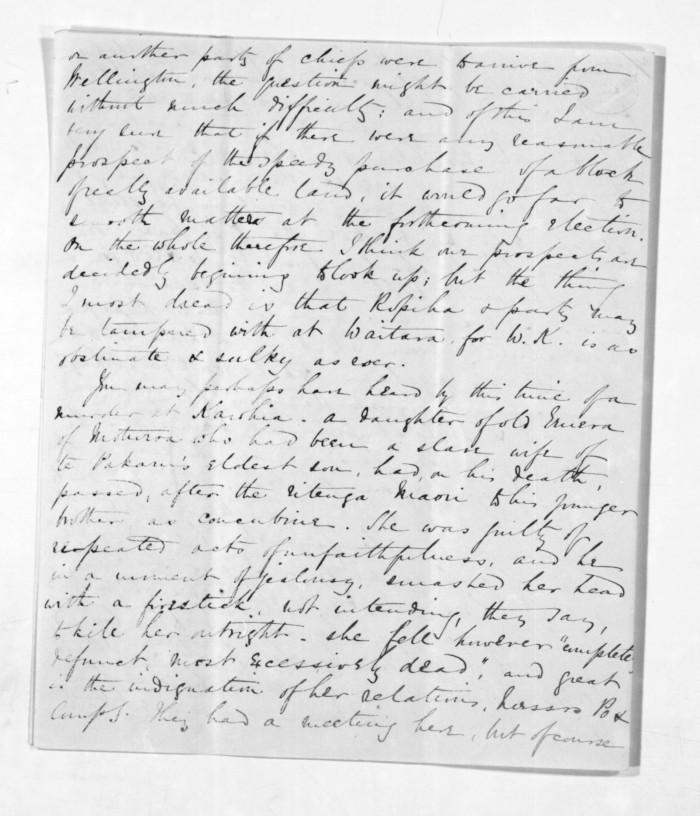 or another party of chiefs were to arrive from
Wellington, the question might be carried
without much difficulty; and of this I am
very sure that if there were any reasonable
prospect of the speedy purchase of a block
freely available land, it would go far to
smooth matters at the forthcoming election.
On the whole therefore I think our prospects are
decidedly begining to look up; but the thing
I most dread is that Ropiha & party may
be tampered with at Waitara, for W.K. is as
obstinate & sulky as ever.
You may perhaps have heard by this time of a
murder at Karohia. a daughter of old Emera
of Moturoa who had been a slave wife of
te Pakaru's eldest son, had, on his death,
passed, after the ritenga Maori to his younger
brother as concubine. She was guilty of
repeated acts of unfaithfulness, and he
in a moment of jealousy, smashed her head
with a firestick, not intending, they say,
to kill her outright. she fell however "complete
defunct, most excessively dead", and great
is the indignation of her relations, Messrs Po &
Comp. They had a meeting here, but of course